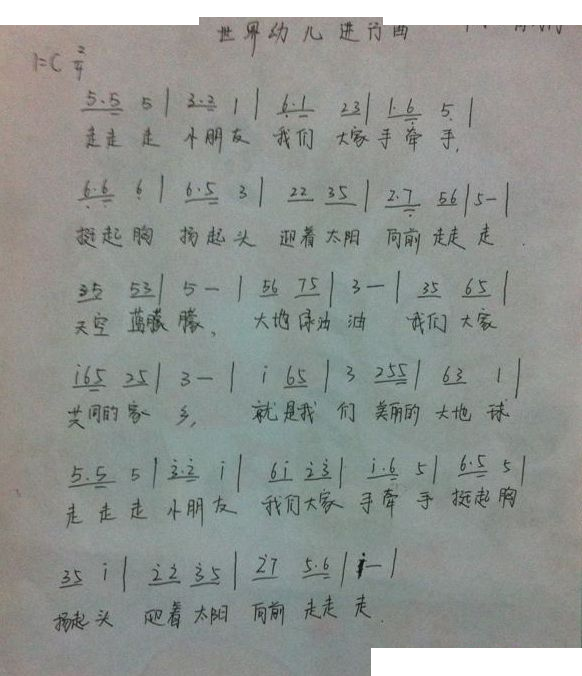 世界幼儿进行曲
1=C 2/4
5.5 5 | 3.2 1 | 6.1 23 | 1.6 5 |
走走 走 小朋友 我们 大家 手牵 手,
6.6 6 | 6.5 3 | 22 35 | 2.7 56 | 5— |
挺起胸 扬起头 迎着太阳 向前 走走 走.
35 53 | 5— | 56 75 | 3— | 35 65 |
天空 蓝朦朦, 大地绿油油 我们 大家
i65 25 | 3— | i 65 | 3 255 | 63 1 |
共同的家乡, 就是我 们 美丽的 大地 球
5.5 5 | 3.2 i | 6i 23 | i.6 5 | 6.5 5 |
走走走 小朋友 我们大家 手牵手 挺起胸
35 i | 22 35 | 27 5.6 | i— |
扬起头 迎着 太阳 向前 走走 走.